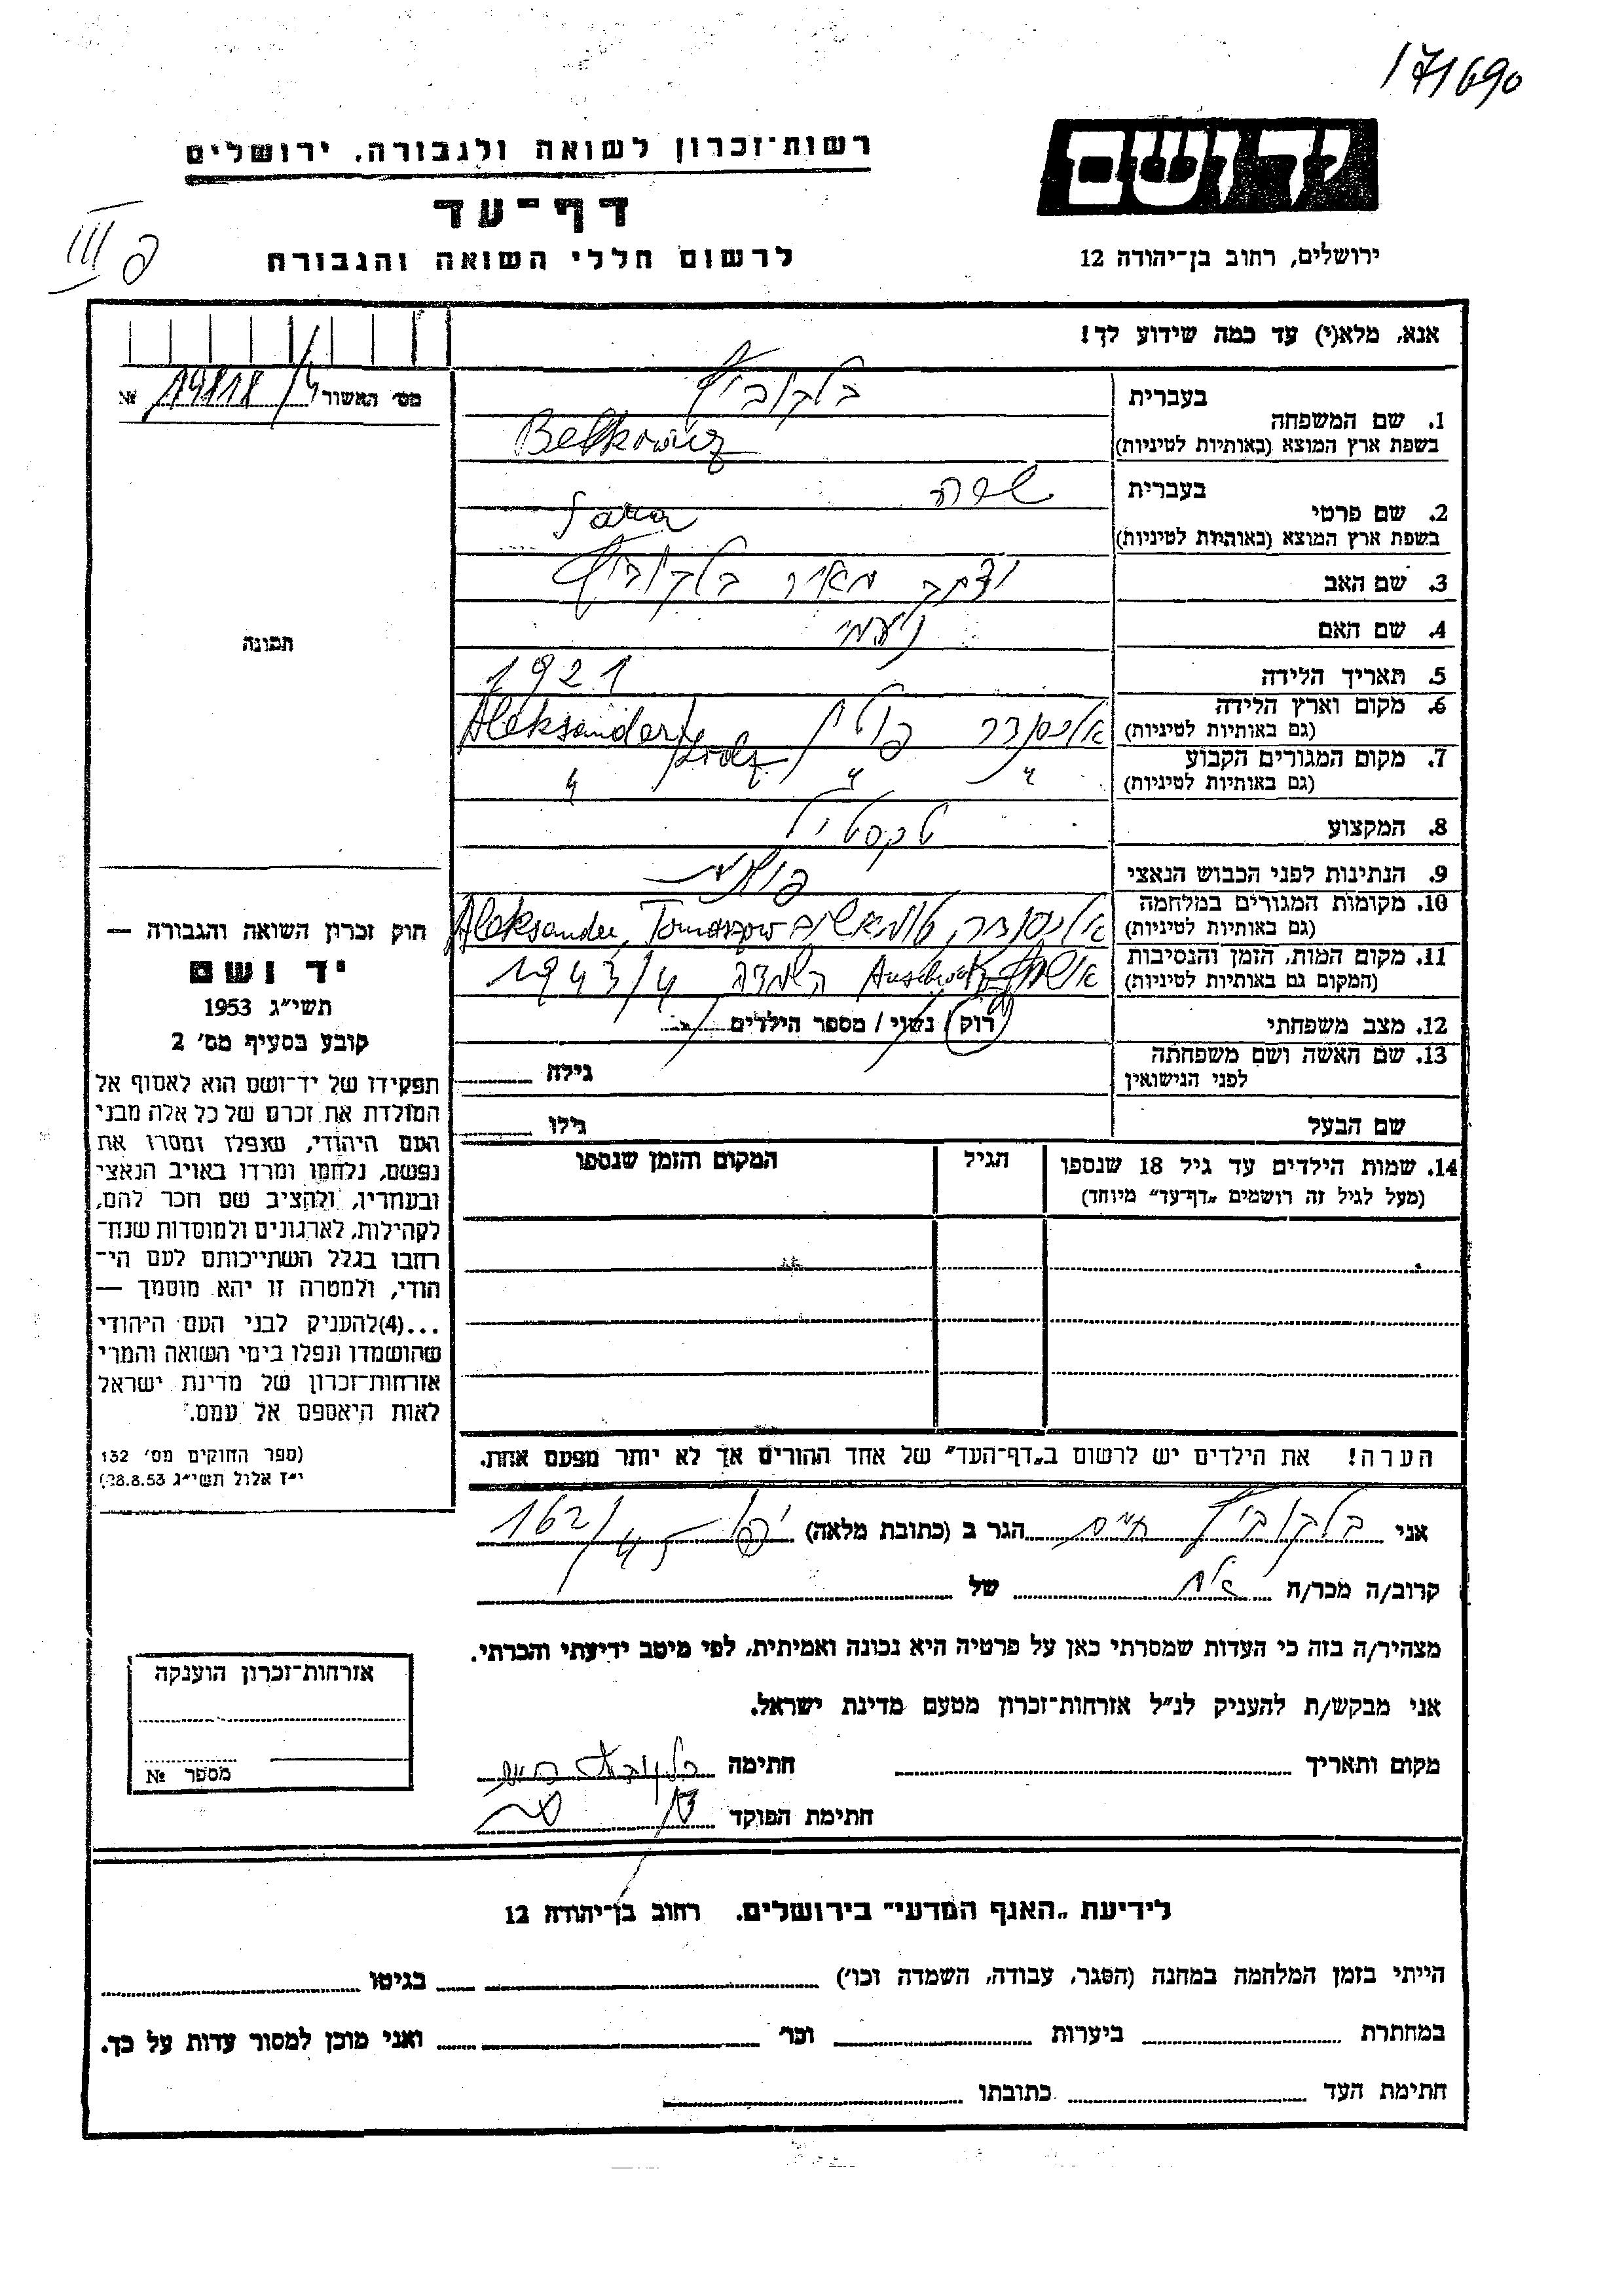 171690
יד ושם
רשות־זכרון לשואה ולגבורה, ירושלים
דף־עד
לרשום חללי השואה והגבורה
ירושלים, רחוב בן־יהודה 12
III פ
אנא, מלא(י) עד כמה שידוע לך!
מס' האשור 19818/4 №
1. שם המשפחה
בעברית בלקוביץ
בשפת ארץ המוצא (באותיות לטיניות) Belkowicz
2. שם פרטי
בעברית שרה
בשפת ארץ המוצא (באותיות לטיניות) Sara
3. שם האב יעקב מאיר בלקוביץ
4. שם האם נעמי
5. תאריך הלידה 1921
6. מקום וארץ הלידה
(גם באותיות לטיניות) אלכסנדר פולין Aleksander/Lodz
7. מקום המגורים הקבוע
(גם באותיות לטיניות) " " "
8. המקצוע טקסטיל
9. הנתינות לפני הכבוש הנאצי פולנית
10. מקומות המגורים במלחמה
(גם באותיות לטיניות) אלכסנדר, טומאשוב Aleksander, Tomaszow
11. מקום המות, הזמן והנסיבות
(המקום גם באותיות לטיניות) Auschwitz השמדה 1943/4
12. מצב משפחתי רוק / נשוי / מספר הילדים
13. שם האשה ושם משפחתה
לפני הנישואין גילה
שם הבעל גילו
14. שמות הילדים עד גיל 18 שנספו
(מעל לגיל זה רושמים „דף־עד״ מיוחד)
הגיל
המקום והזמן שנספו
הערה! את הילדים יש לרשום ב„דף־העד״ של אחד ההורים אך לא יותר מפעם אחת.
תמונה
חוק זכרון השואה והגבורה —
יד ושם
תשי״ג 1953
קובע בסעיף מס' 2
תפקידו של יד־ושם הוא לאסוף אל
המולדת את זכרם של כל אלה מבני
העם היהודי, שנפלו ומסרו את
נפשם, נלחמו ומרדו באויב הנאצי
ובעוזריו, ולהציב שם וזכר להם,
לקהילות, לארגונים ולמוסדות שנח־
רבו בגלל השתייכותם לעם הי־
הודי, ולמטרה זו יהא מוסמך —
...(4)להעניק לבני העם היהודי
שהושמדו ונפלו בימי השואה והמרי
אזרחות־זכרון של מדינת ישראל
לאות היאספם אל עמם.״
(ספר החוקים מס' 132
י״ז אלול תשי״ג 28.8.53)
אני בלקוביץ חיים הגר ב (כתובת מלאה) יפו 162/45
קרוב/ה מכר/ה אח של
מצהיר/ה בזה כי העדות שמסרתי כאן על פרטיה היא נכונה ואמיתית, לפי מיטב ידיעתי והכרתי.
אני מבקש/ת להעניק לנ״ל אזרחות־זכרון מטעם מדינת ישראל.
מקום ותאריך
חתימה בלקוביץ חיים
חתימת הפוקד
אזרחות־זכרון הוענקה
מספר №
לידיעת „האגף המדעי״ בירושלים. רחוב בן־יהודה 12
הייתי בזמן המלחמה במחנה (הסגר, עבודה, השמדה וכו') בגיטו
במחתרת ביערות וכו' ואני מוכן למסור עדות על כך.
חתימת העד כתובתו